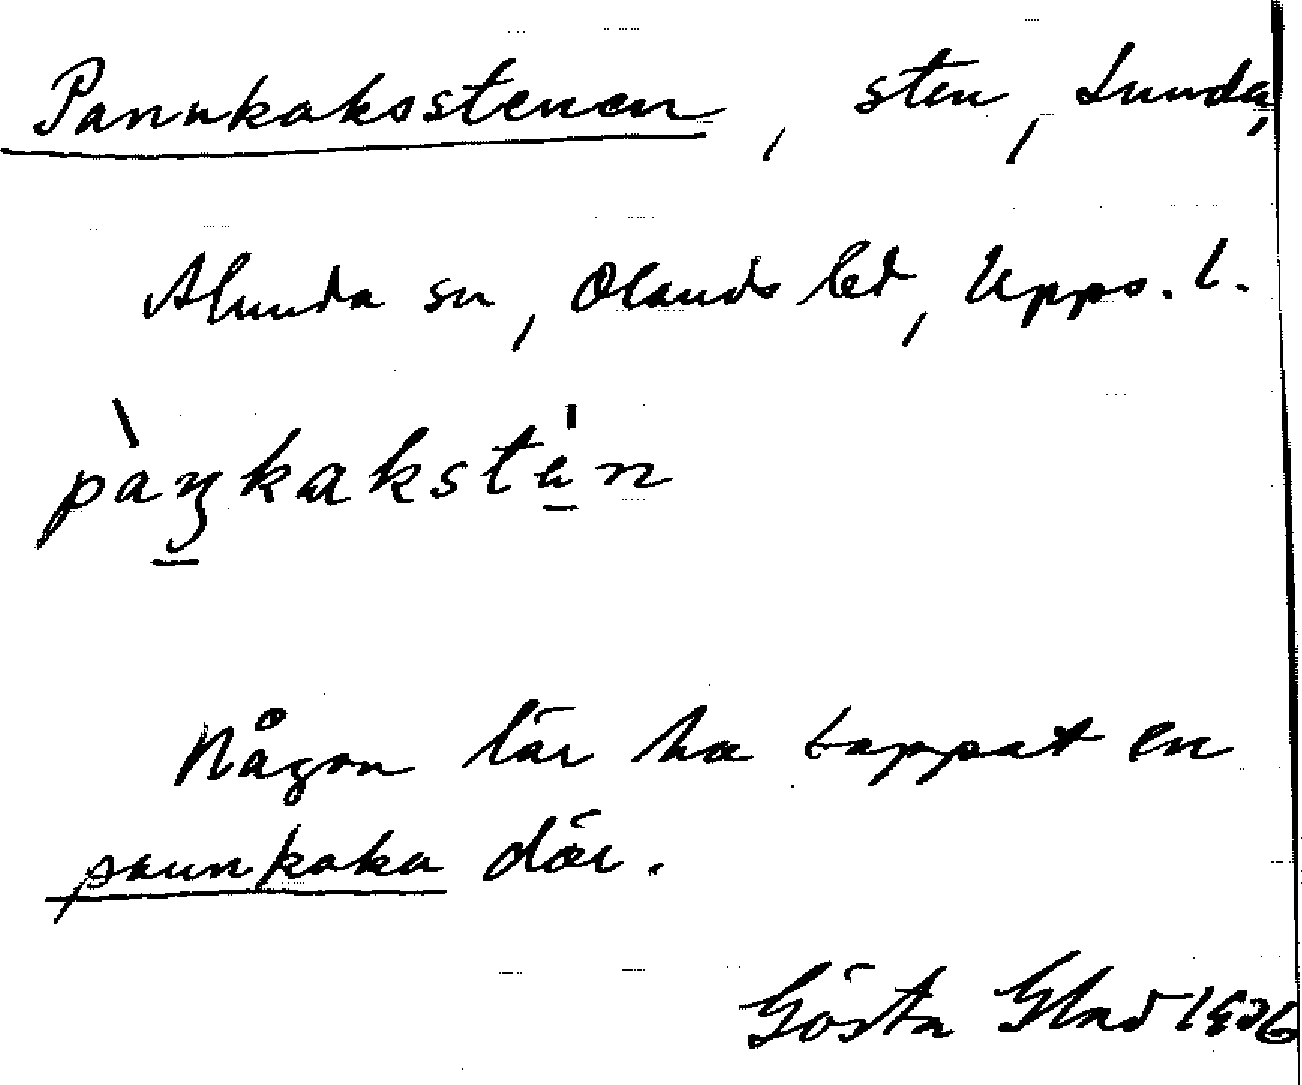 Pannkaksstenen, sten, Lunda,
Alunda sn, Olands hd, Upps. l.
pàŋkakste̱'n
Någon lär ha tappat en
pannkaka där.
Gösta Blad 1936